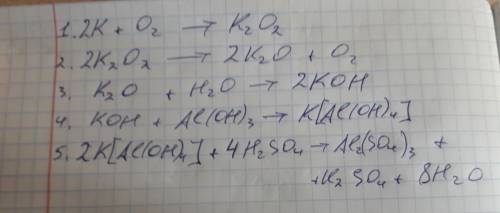 1. 2K + O₂ → K₂O₂
2. 2K₂O₂ → 2K₂O + O₂
3. K₂O + H₂O → 2KOH
4. KOH + Al(OH)₃ → K[Al(OH)₄]
5. 2K[Al(OH)₄] + 4H₂SO₄ → Al₂(SO₄)₃ +
+K₂SO₄ + 8H₂O